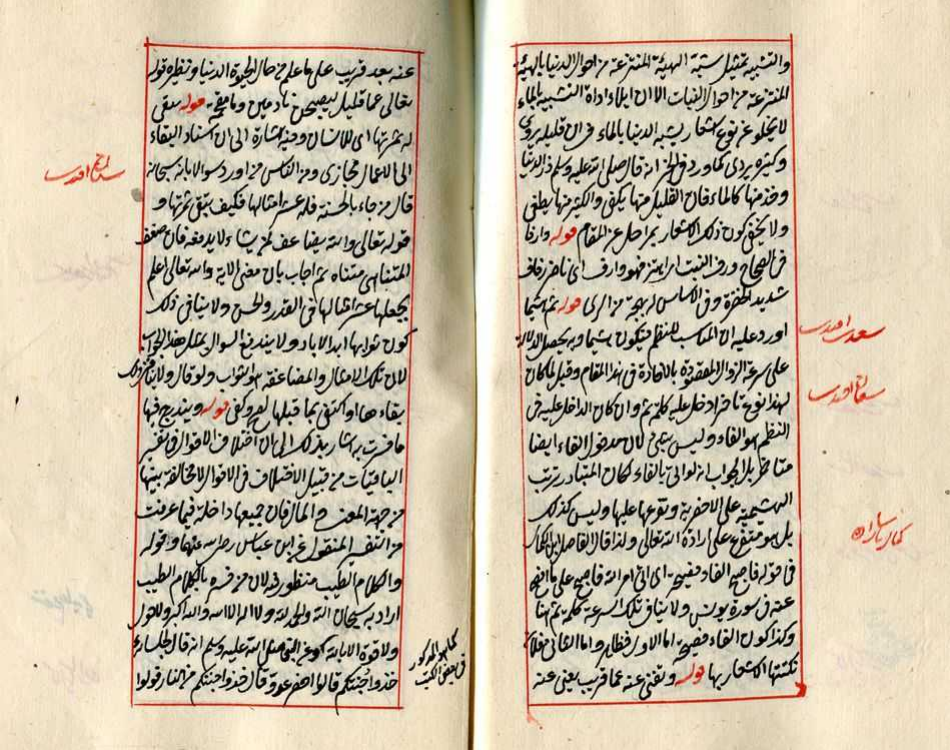 والتشبيه تمثيل شبه الهيئة المنتزعة من احوال الدنيا بالهيئة
المنتزعة من احوال النبات الا ان ايلاء اداة التشبيه بالماء
لا يخلو عن نوع اشعار بشبه الدنيا بالماء فى ان قليله يروى
وكثيره يردى كما ورد فى الخبر انه قال صلى الله عليه وسلم
وخذ منها كالماء فان القليل منها يكفى والكثير منها يطغى
ولا يخفى كون ذلك الاشعار بمراحل عن المقام قوله وارفا
فى الصحاح ورف النبت اى اهتز فهو وارف اى ناضر رفاف
شديد الخضرة وفى الاساس له بهجة من الرى قوله ثم هشيما
اورد عليه ان المناسب للنظم فيكون هشيما وبه يحصل الدلالة
على سرعة الزوال المقصودة بالافادة فى هذا المقام وقيل لما كان
لهذا نوع تأخر ادخل عليه كلمة ثم وان كان الداخل عليه فى
النظم هو الفاء وليس بشئ لان مدخول الفاء ايضا
متأخر بل الجواب انه لو اتى بالفاء لكان المتبادر ترتب
الهشيمية على الاخضرية وتوعها عليها وليس كذلك
بل هو متفرع على ارادة الله تعالى ولذا قال الفاضل
فى قوله فاصبح الفاء فصيحة اى
عنه فى سورة يونس ولا ينافى تلك السرعة كلمة ثم هنا
وكذا كون الفاء فصيحة اما الاول فظاهر واما الثانى فلان
نكتتها الاشعار بها قوله وتفنى عنه عما قريب يعنى عنه
سعدى افندى
سنان افندى
عنه بعد قريب على ما علم من حال الحيوة الدنيا ونظيره قوله
تعالى عما قليل ليصبحن نادمين وما مقحمة قوله تبقى
له ثمرتها اى للانسان وفيه اشارة الى ان اسناد البقاء
الى الاعمال مجازى ومن الناس من اورد سؤالا بانه سبحانه
قال من جاء بالحسنة فله عشر امثالها فكيف يبقى ثمرتها و
قوله تعالى والله يضاعف لمن يشاء لا يدفعه فان ضعف
المتناهى متناه ثم اجاب بان معنى الاية والله تعالى اعلم
يجعلها عشر امثالها فى القدر والحسن ولا ينافى ذلك
كون ثوابها ابد الاباد ولا يندفع السؤال بمثل هذا الجواب
لان تلك الامثال والمضاعفة هو الثواب ولو قال ولا ينافى ذلك
بقاءها او اكتفى بما قبلها لصح وكفى قوله ويندرج فيها
ما فسرت به اشار بذلك الى ان اختلاف الاقوال فى تفسير
الباقيات من قبيل الاختلاف فى الاقوال لا مخالفة بينها
من جهة المعنى والمآل فان جميعها داخلة فيما عرفت
من التفسير المنقول عن ابن عباس رضى الله عنهما وقوله
والكلام الطيب منظور فيه لان من فسره بالكلام الطيب
اراد به سبحان الله والحمد لله ولا اله الا الله والله اكبر ولا حول
ولا قوة الا بالله وعن النبى صلى الله عليه وسلم انه قال لجلسائه
خذوا جنتكم قالوا احضر عدو قال خذوا جنتكم من النار قولوا